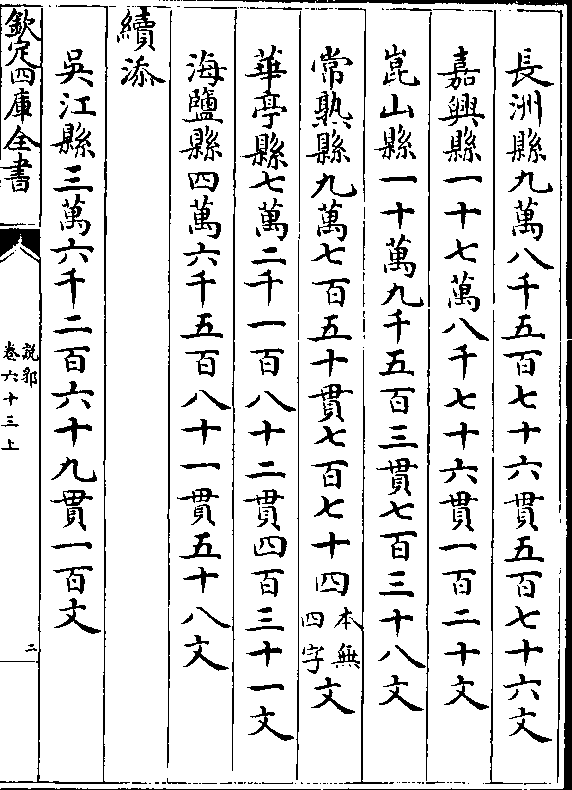 長洲縣九萬八千五百七十六貫五百七十六文
嘉興縣一十七萬八千七十六貫一百二十文
崑山縣一十萬九千五百三貫七百三十八文
常熟縣九萬七百五十貫七百七十四本無四字文
華亭縣七萬二千一百八十二貫四百三十一文
海鹽縣四萬六千五百八十一貫五十八文
續添
吳江縣三萬六千二百六十九貫一百文
欽定四庫全書
說郛
卷六十三上
二